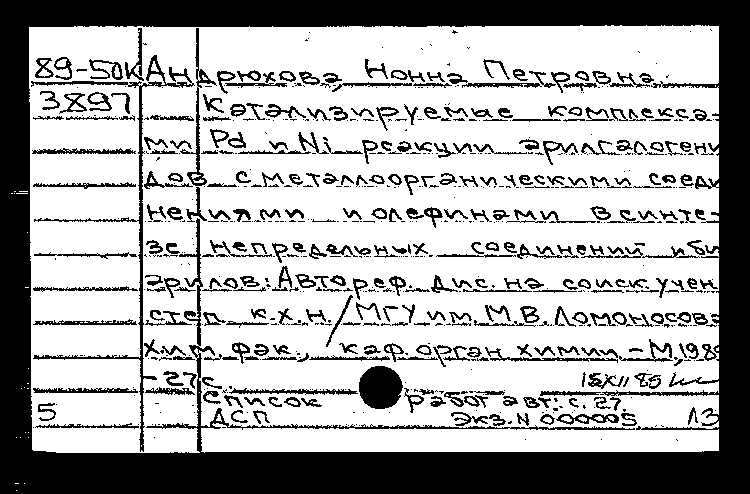 89-50К Андрюхова, Нонна Петровна.
3897 Катализируемые комплекса-
ми Pd и Ni реакции арилгалогени
дов с металлоорганическими соеди
нениями и олефинами в синте-
зе непредельных соединений и би
арилов: Автореф. дис. на соиск учен
степ к.х.н. / МГУ им. М.В. Ломоносова
Хим. фак., каф орган химии. - М, 198
- 27с.
Список работ авт: с. 27.
5 ДСП Экз. N 000005 13